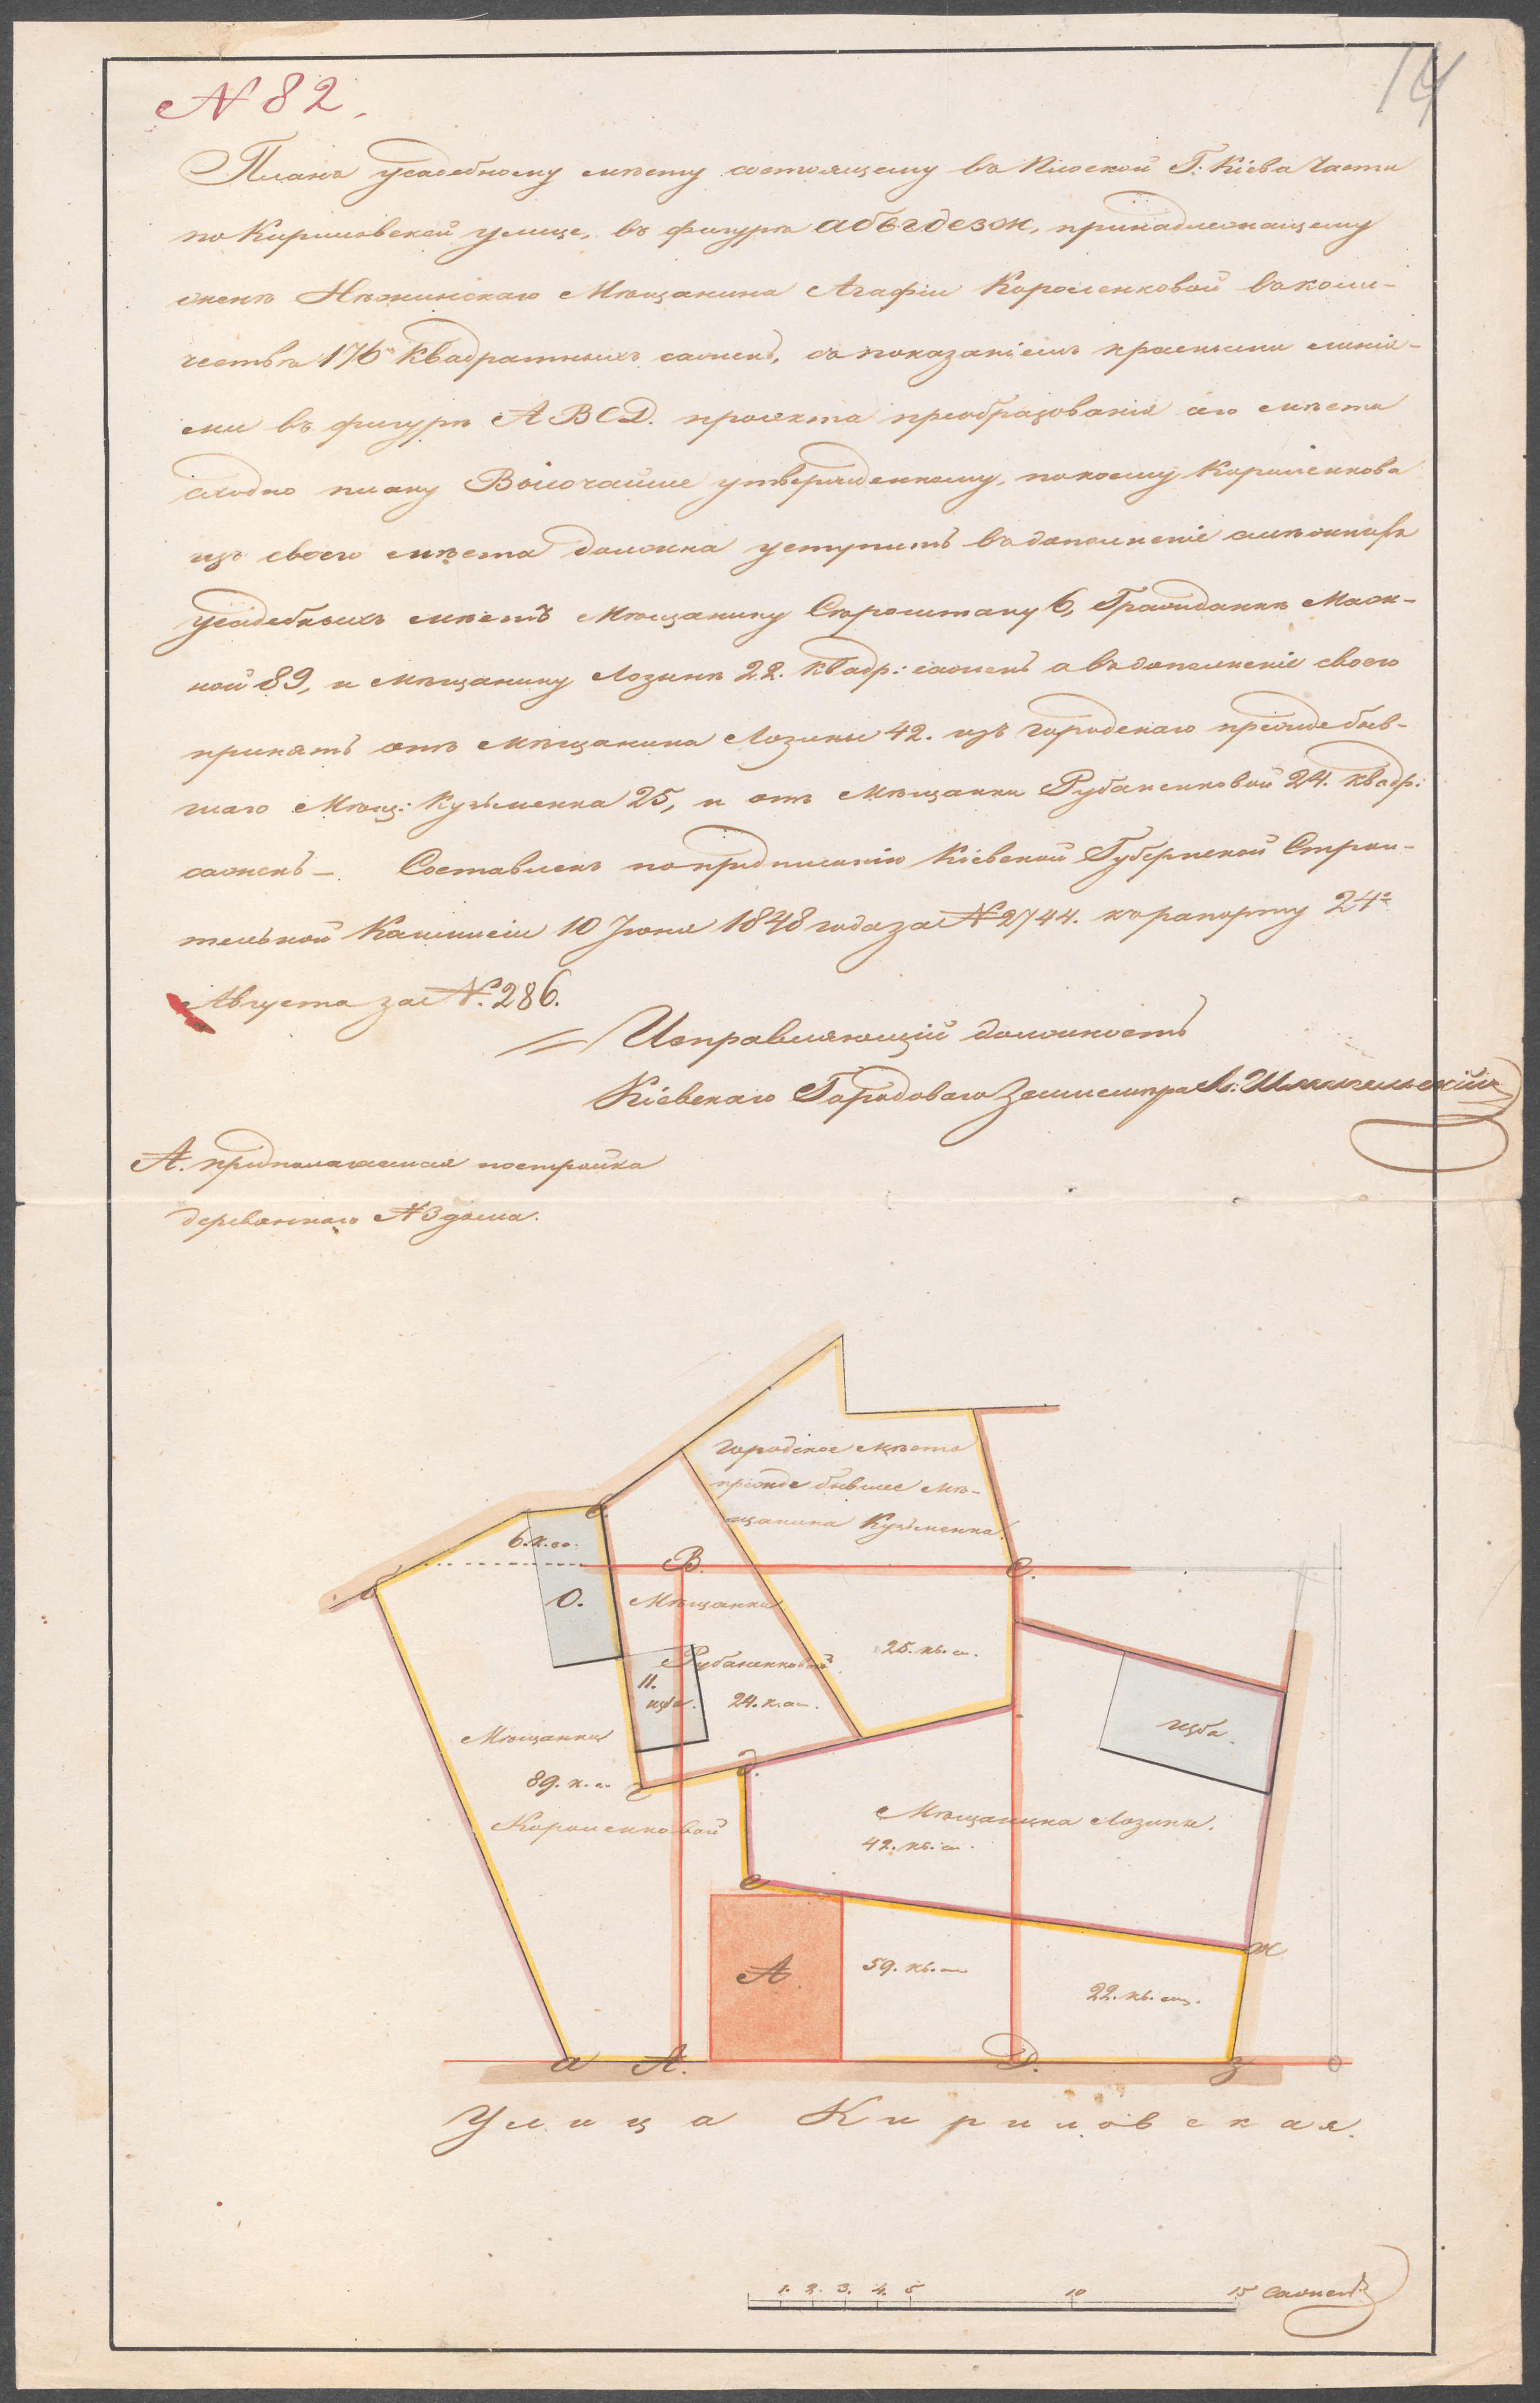 N 82.
14
Планъ усадебному мѣсту состоящему въ Плоской Г. Кіева Части
по Кириловской улицѣ, въ фигурѣ абвгдезж, принадлежащему
женѣ Нѣжинскаго Мѣщанина Агафіи Короленковой въ коли-
чествѣ 176 Квадратныхъ саженъ, съ показаніемъ красными линія-
ми въ фигурѣ АВСД. проэкта преобразованія сего мѣста
сходно плану Высочайше утвержденному, по коему Короленкова
изъ своего мѣста должна уступить въ дополненіе смѣжныхъ
усадебныхъ мѣстъ Мѣщанину 6, Гражданкѣ
89, и мѣщанину Лозинѣ 22. квадр: саженъ а въ дополненіе своего
принять отъ мѣщанина Лозины 42. изъ городскаго прежде быв-
шаго Мѣщ: Кузьменка 25, и отъ мѣщанки Рубаненковой 24. квадр:
саженъ — Составленъ по предписанію Кіевской Губернской Строи-
тельной Коммисіи 10 Іюня 1848 года за N 2744. къ рапорту 24го
Августа за N. 286.
Исправляющій должность
Кіевскаго Городоваго Землемѣра
А. предполагаемая постройка
деревяннаго N 3 дома.
городское мѣсто
прежде бывшее мѣ-
щанина Кузьменка.
6. к. са:
О.
В.
С.
Мѣщанки
Рубаненковой
25. кв. с.
11.
изба.
24. к. са.
изба.
Мѣщанки
89. к. с.
Короленковой
г
д.
Мѣщанина Лозины.
42. кв. с.
е
ж
А
59. кв. с.
22. кв. саж.
а
А.
Д.
з
Улица Кириловская.
1. 2. 3. 4. 5 10 15 Саженъ